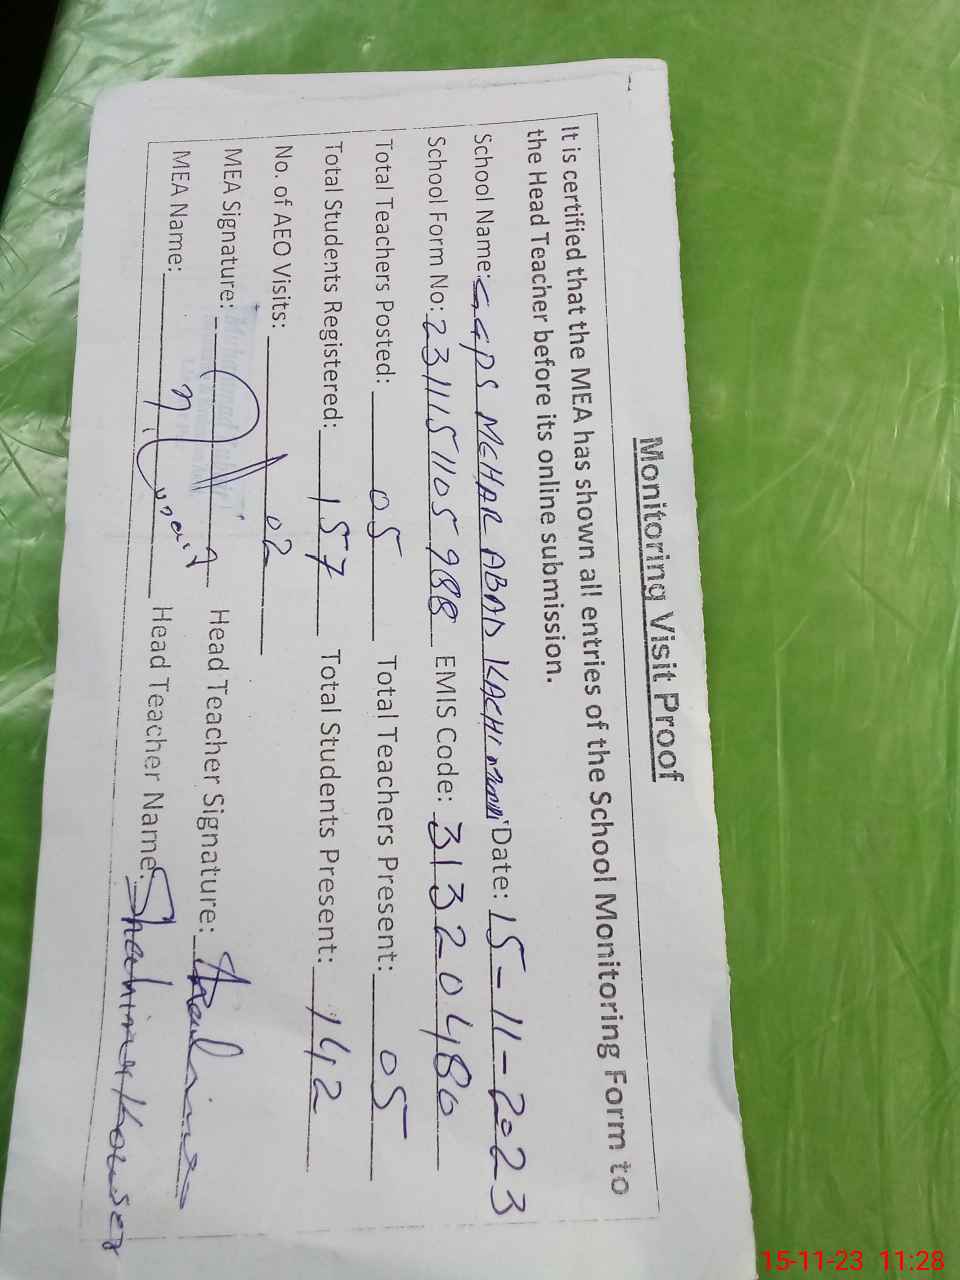 Monitoring Visit Proof
It is certified that the MEA has shown all entries of the School Monitoring Form to
the Head Teacher before its online submission.
School Name: GGPS MEHAR ABAD KACHI Date: 15-11-2023
School Form No: 2311151105988 EMIS Code: 31320480
Total Teachers Posted: 05 Total Teachers Present: 05
Total Students Registered: 157 Total Students Present: 142
No. of AEO Visits: 02
MEA Signature: Head Teacher Signature:
MEA Name: Head Teacher Name: Shahina Kouser
15-11-23 11:28